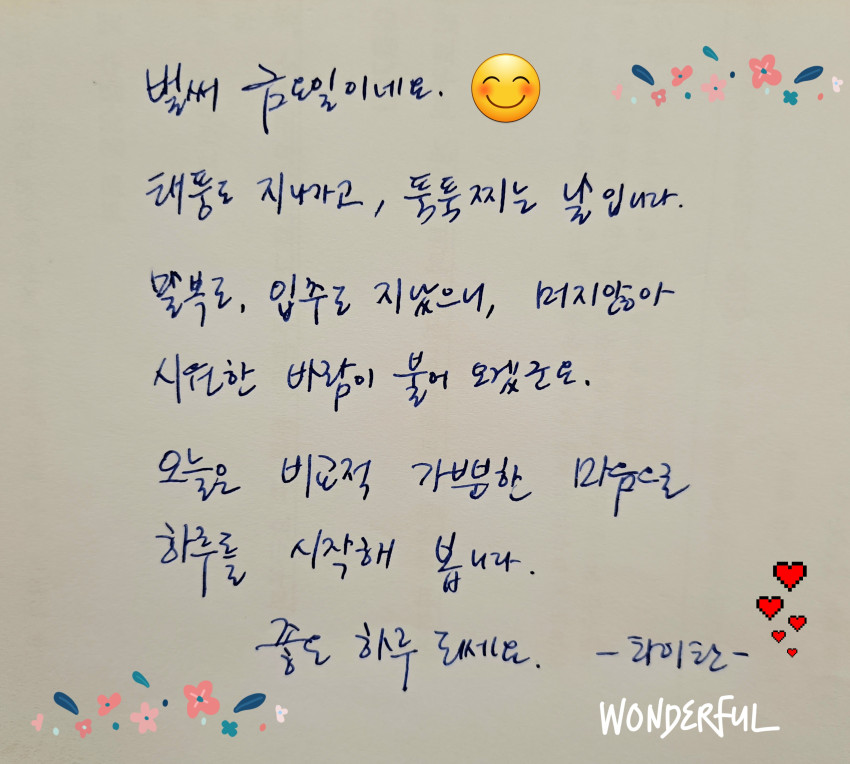 벌써 금요일이네요.
태풍도 지나가고, 푹푹찌는 날입니다.
말복도, 입추도 지났으니, 머지않아
시원한 바람이 불어 오겠군요.
오늘은 비교적 가뿐한 마음으로
하루를 시작해 봅니다.
좋은 하루 되세요. -타이탄-
WONDERFUL